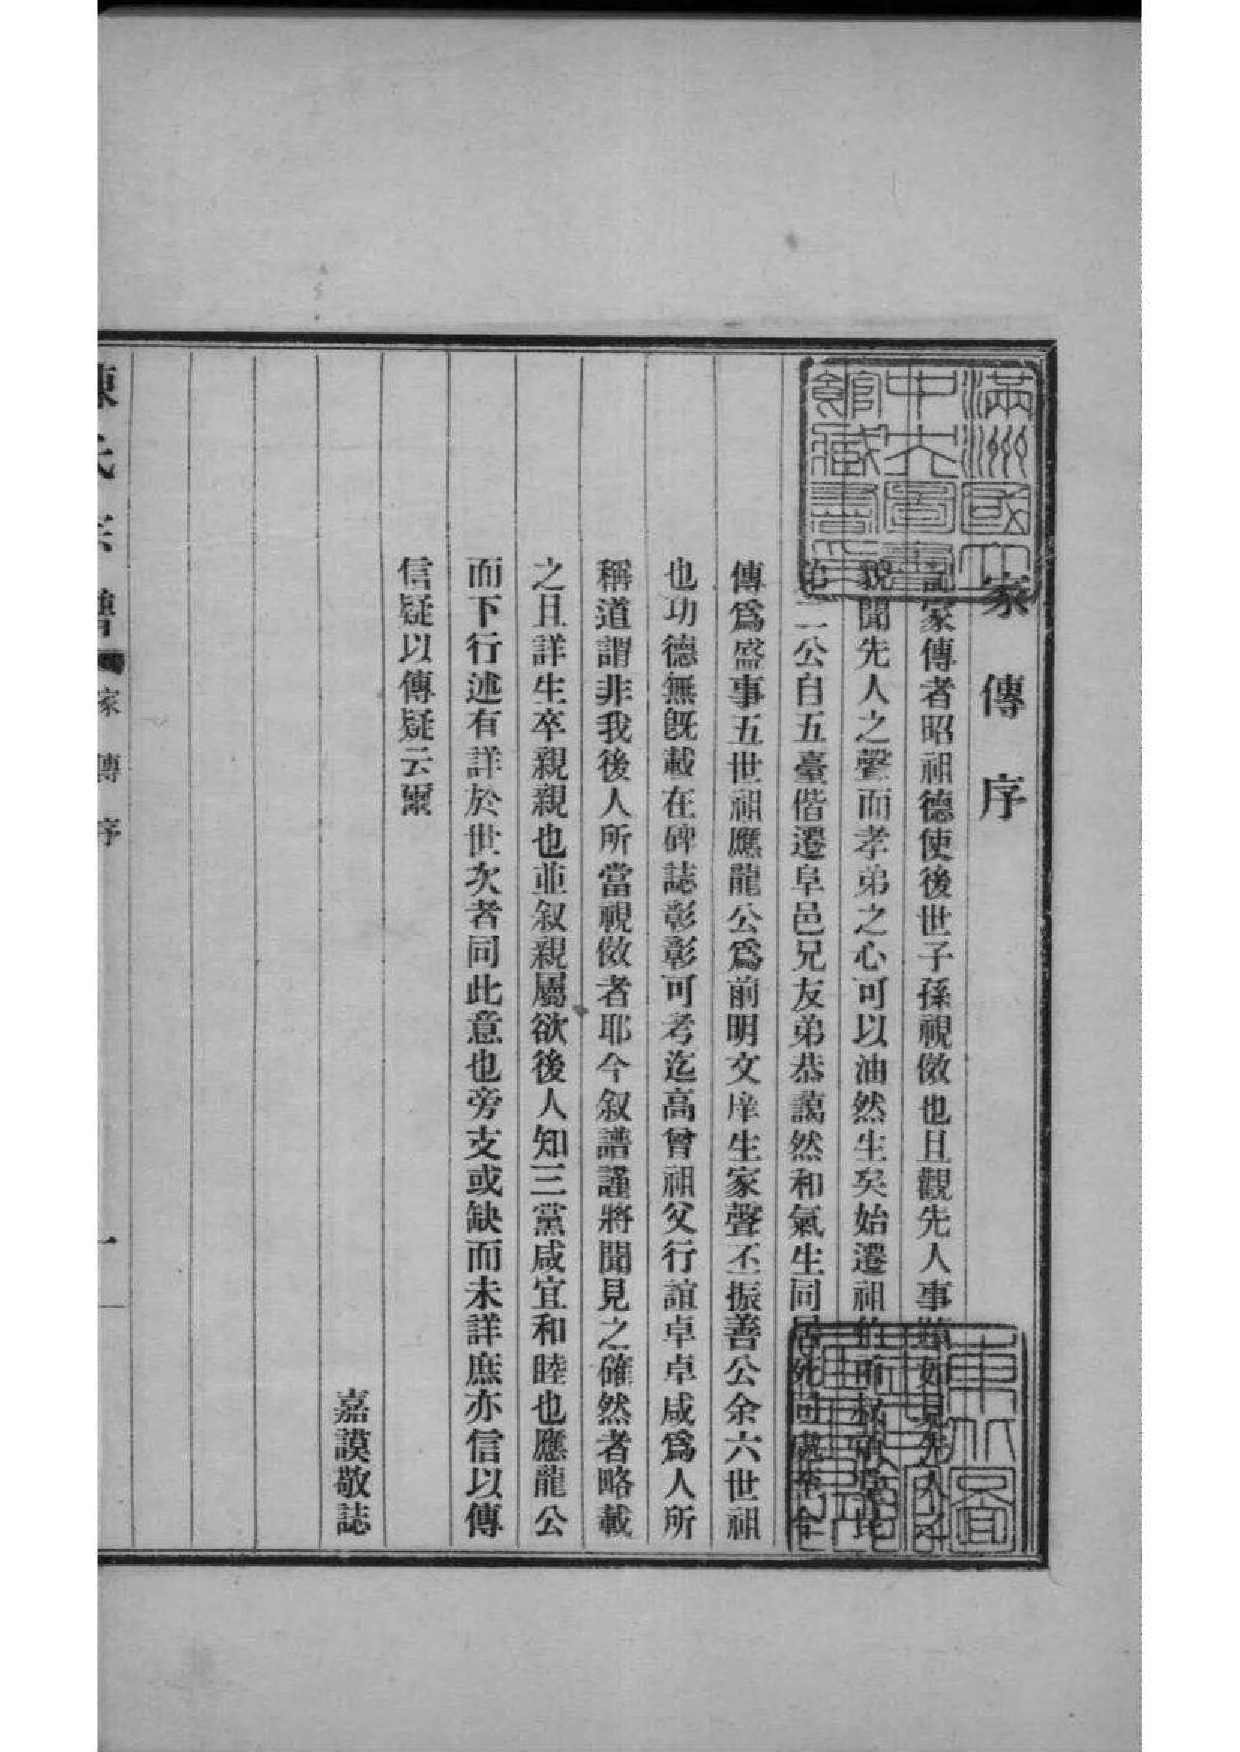 家傳序
記家傳者昭祖德使後世子孫視傚也且觀先人事如見先人之
貌聞先人之聲而孝弟之心可以油然生矣始遷祖
二公自五臺偕遷阜邑兄友弟恭藹然和氣生同居死同處至今
傳爲盛事五世祖應龍公爲前明文庠生家聲丕振善公余六世祖
也功德無旣載在碑誌彰彰可考迄高曾祖父行誼卓卓咸爲人所
稱道謂非我後人所當視傚者耶今叙譜謹將聞見之確然者略載
之且詳生卒親親也並叙親屬欲後人知三黨咸宜和睦也應龍公
而下行述有詳於世次者同此意也旁支或缺而未詳庶亦信以傳
信疑以傳疑云爾
嘉謨敬誌
陳氏宗譜
家傳序
一
滿洲國立
中央圖書
館藏書印
東北圖